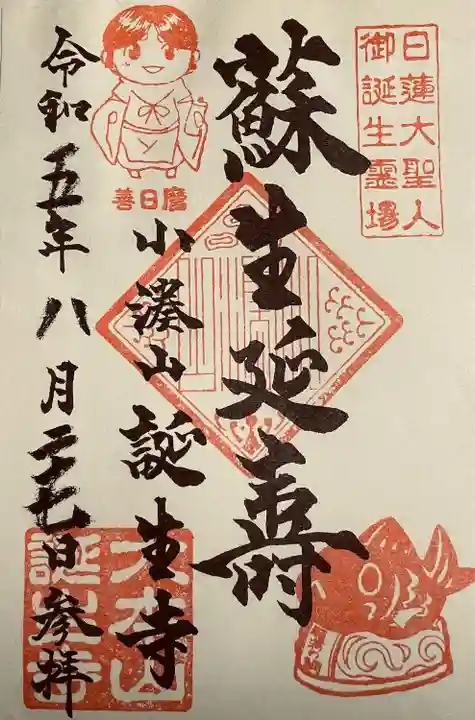 日蓮大聖人
御誕生霊場
蘇生延壽
小湊山 誕生寺
善日麿
令和五年八月二十七日参拝
大本山
誕生寺